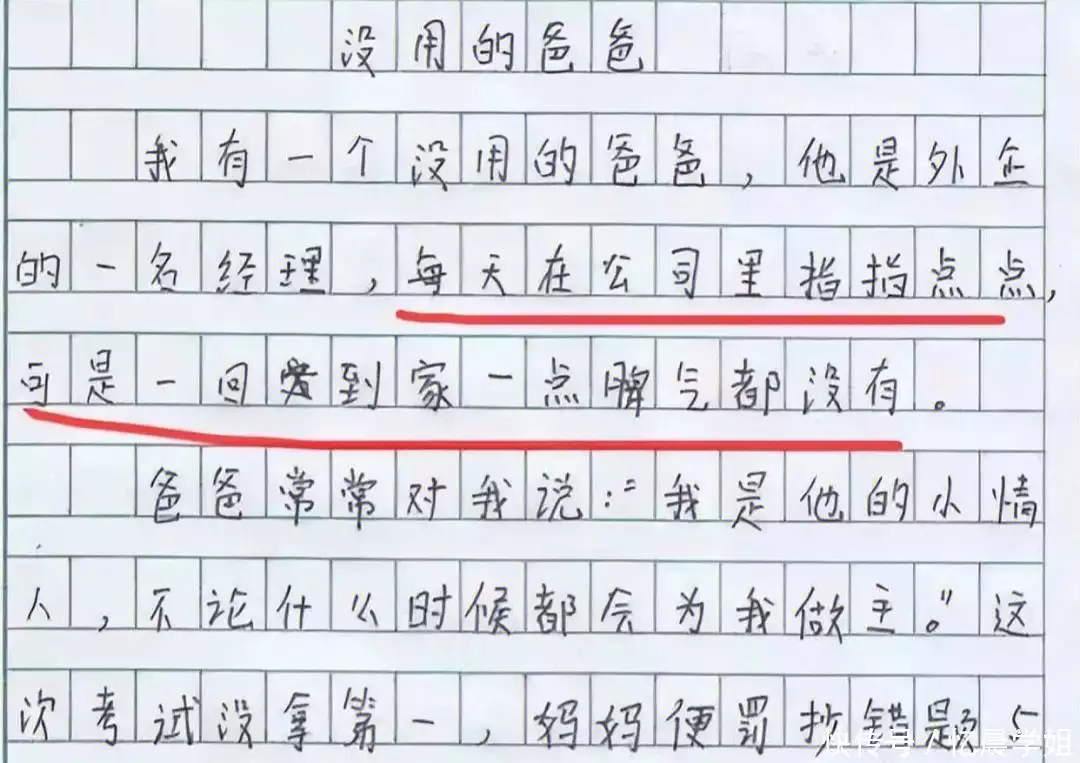 没用的爸爸
我有一个没用的爸爸，他是外企
的一名经理，每天在公司里指指点点，
可是一回到家一点脾气都没有。
爸爸常常对我说：“我是他的小情
人，不论什么时候都会为我做主。”这
次考试没拿第一，妈妈便罚抄错题5
快传号／忆晨学姐